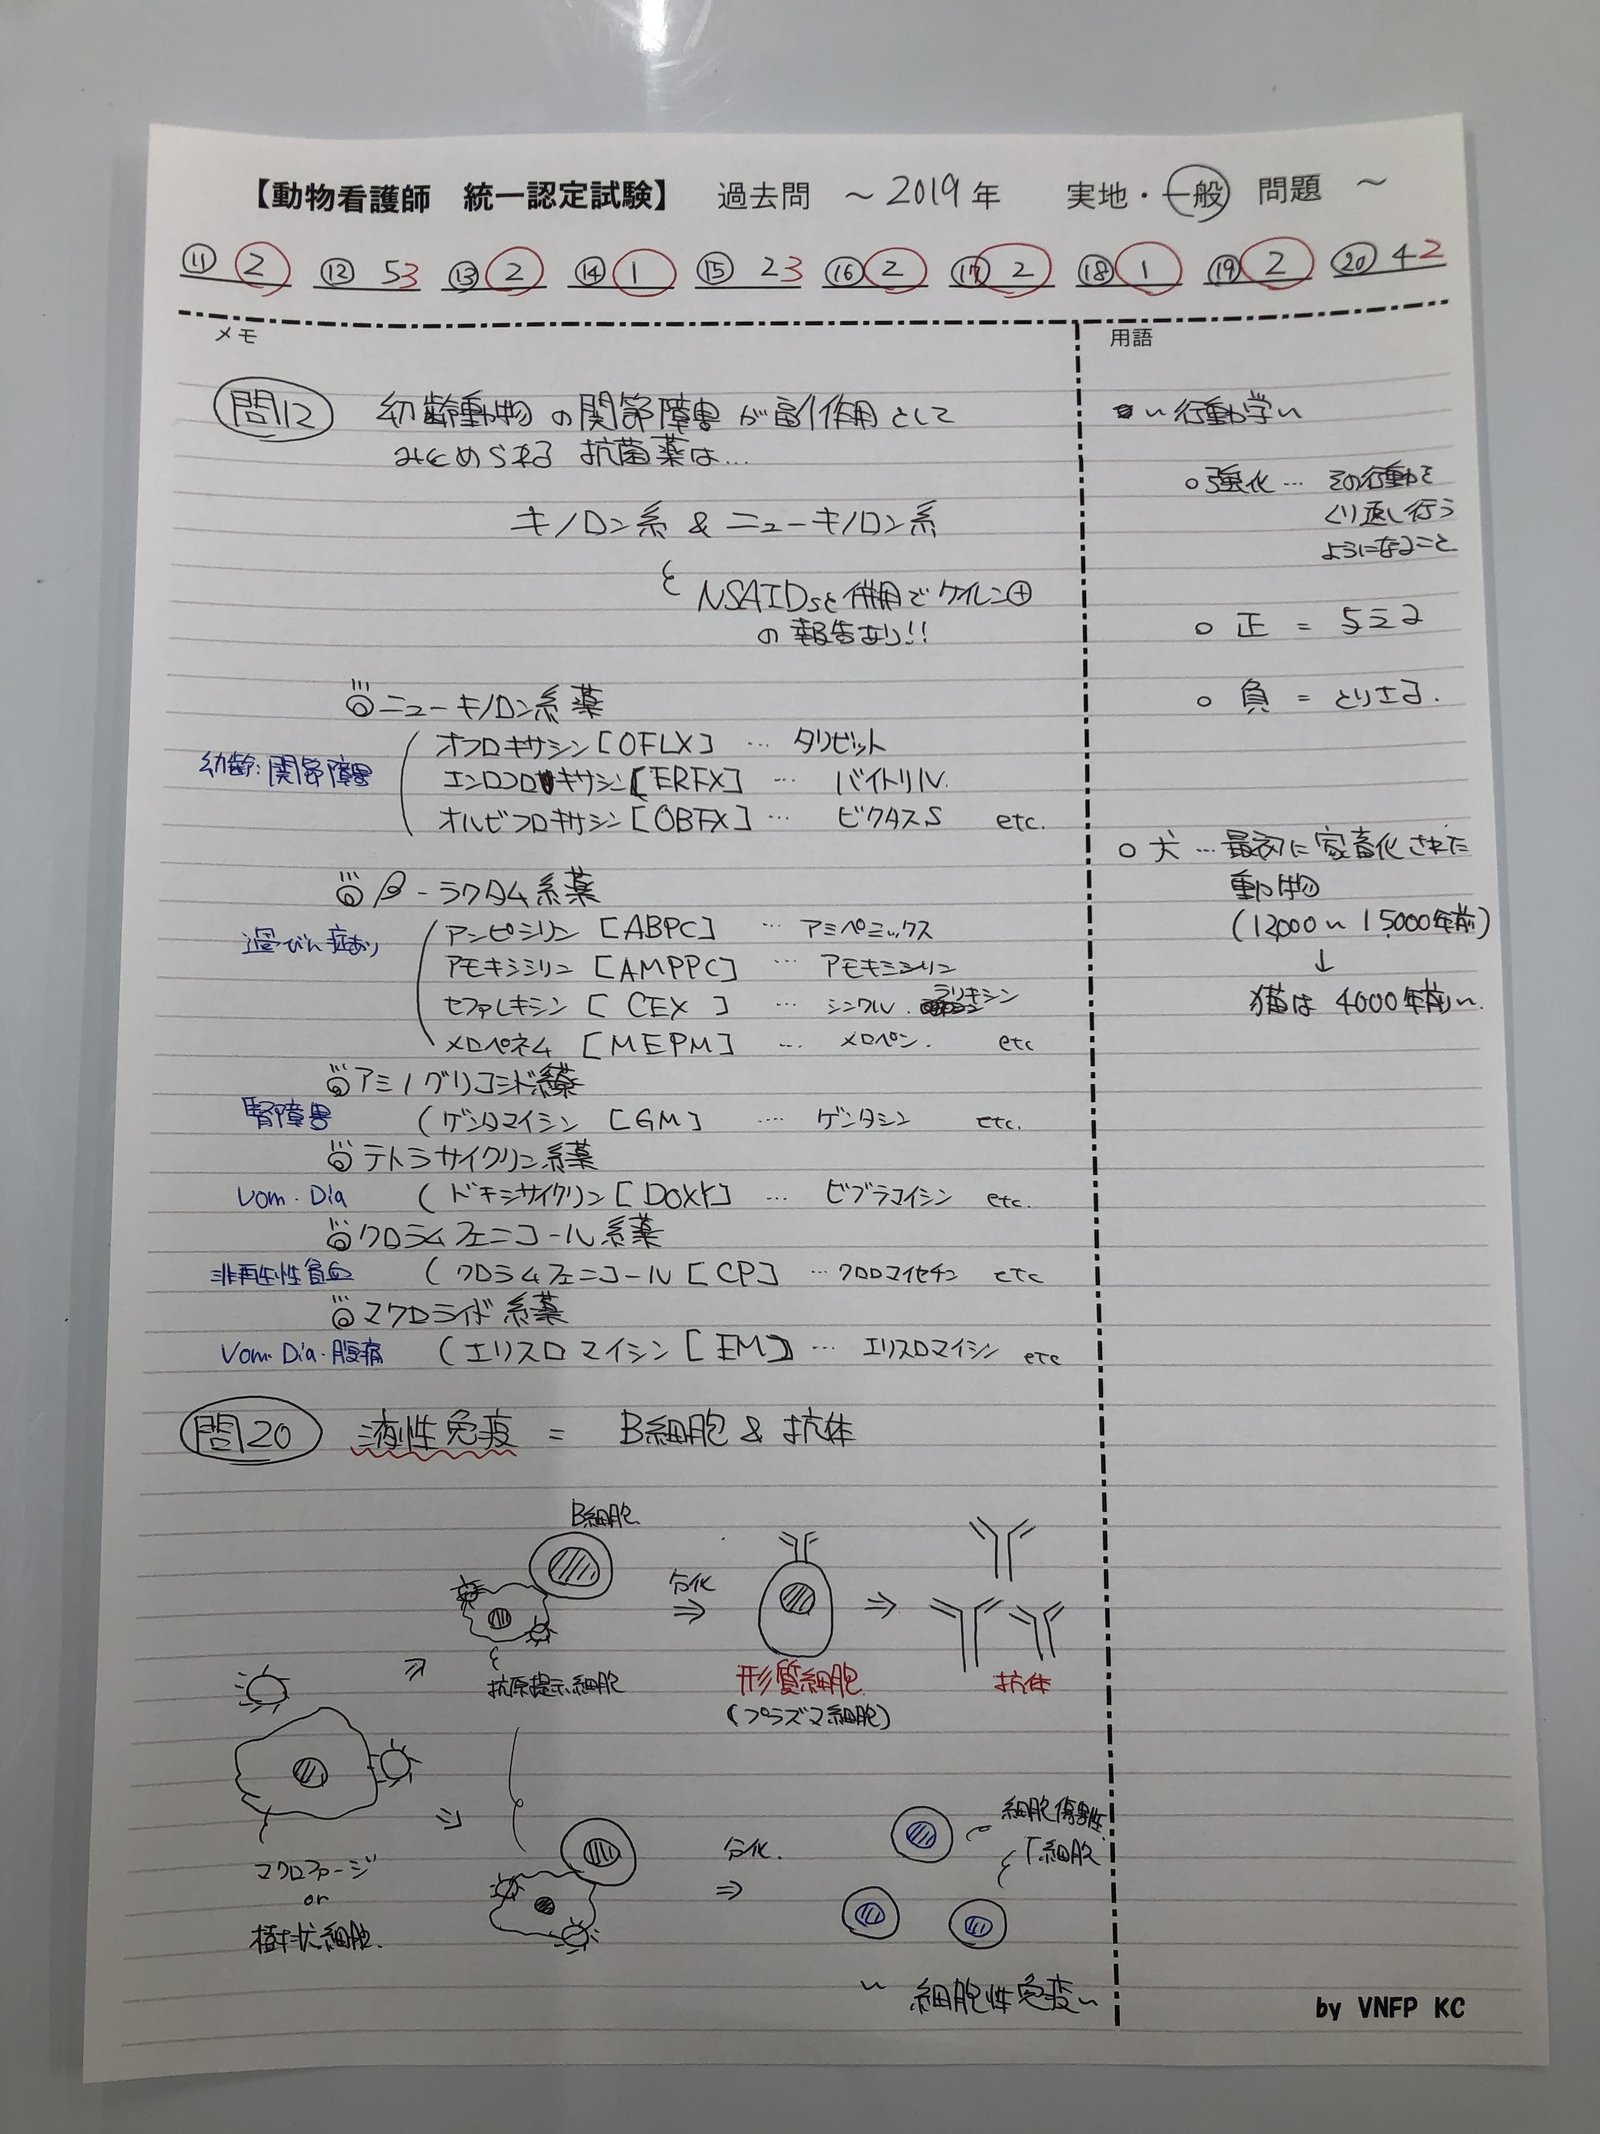 【動物看護師　統一認定試験】　過去問　～2019年　実地・一般　問題　～
⑪ 2　⑫ 53　⑬ 2　⑭ 1　⑮ 23　⑯ 2　⑰ 2　⑱ 1　⑲ 2　⑳ 42
メモ
問12　幼齢動物の関節障害が副作用として
みとめられる　抗菌薬は…
キノロン系 & ニューキノロン系
NSAIDsと併用でケイレン⊕
の報告あり!!
◎ニューキノロン系薬
幼齢:関節障害
オフロキサシン[OFLX] … タリビット
エンロフロキサシン[ERFX] … バイトリル
オルビフロキサシン[OBFX] … ビクタスS　etc.
◎β-ラクタム系薬
過びん症あり
アンピシリン[ABPC] … アミペニックス
アモキシシリン[AMPPC] … アモキシシリン
セファレキシン[CEX] … シンクル.ラリキシン
メロペネム[MEPM] … メロペン.　etc
◎アミノグリコシド系薬
腎障害　(ゲンタマイシン[GM] … ゲンタシン　etc.
◎テトラサイクリン系薬
Vom.Dia　(ドキシサイクリン[DOXY] … ビブラマイシン　etc.
◎クロラムフェニコール系薬
非再生性貧血　(クロラムフェニコール[CP] …クロロマイセチン　etc
◎マクロライド系薬
Vom.Dia.腹痛　(エリスロマイシン[EM] … エリスロマイシン　etc
問20　液性免疫 = B細胞 & 抗体
B細胞
分化
抗原提示細胞
形質細胞
(プラズマ細胞)
抗体
マクロファージ
or
樹状細胞
分化.
細胞傷害性
T細胞
～細胞性免疫～
用語
～行動学～
○強化… その行動を
くり返し行う
ようになること
○ 正 = 与える
○ 負 = とりさる.
○ 犬 … 最初に家畜化された
動物
(12,000～15,000年前)
↓
猫は 4000年前～
by VNFP KC